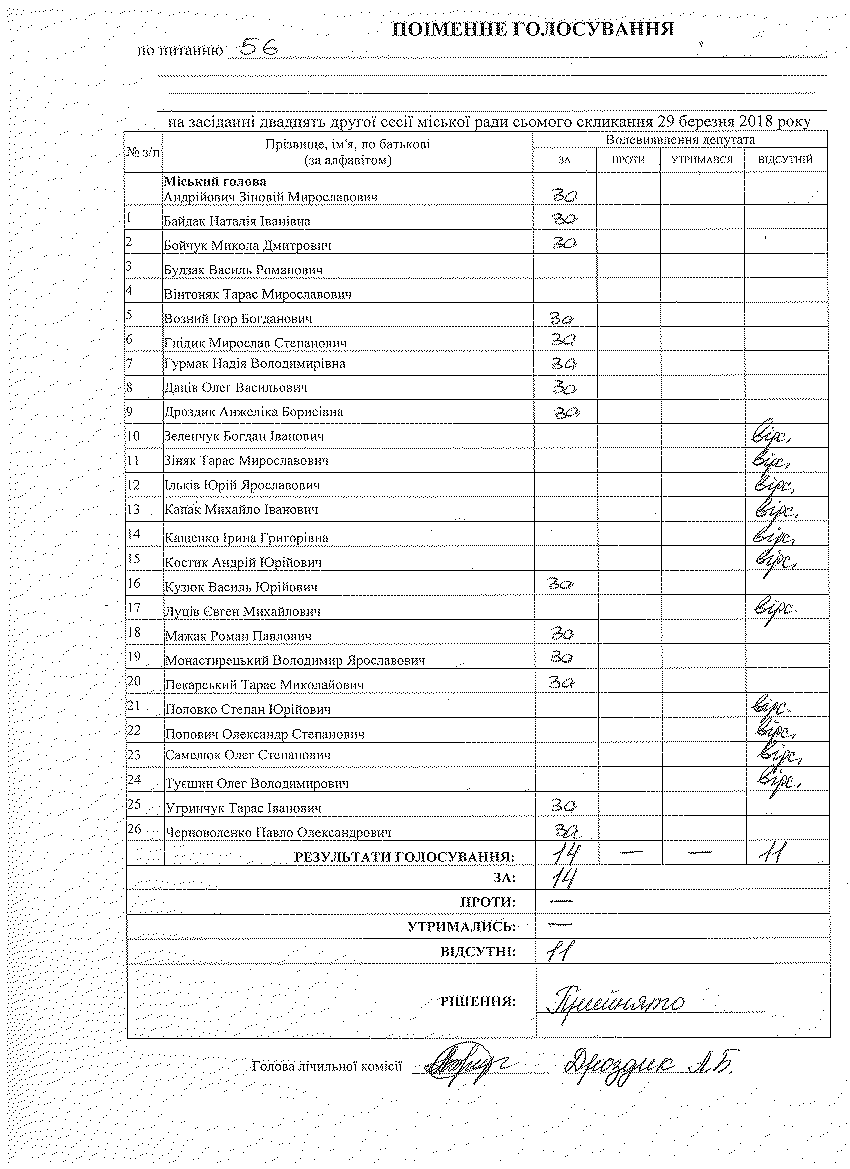 ПОІМЕННЕ ГОЛОСУВАННЯ
по питанню 56
на засіданні двадцять другої сесії міської ради сьомого скликання 29 березня 2018 року
№ з/п Прізвище, ім'я, по батькові (за алфавітом) Волевиявлення депутата
ЗА ПРОТИ УТРИМАВСЯ ВІДСУТНІЙ
Міський голова
Андрійович Зіновій Мирославович За
1 Байдак Наталія Іванівна За
2 Бойчук Микола Дмитрович За
3 Будзак Василь Романович
4 Вінтоняк Тарас Мирославович
5 Возний Ігор Богданович За
6 Гнідик Мирослав Степанович За
7 Гурмак Надія Володимирівна За
8 Даців Олег Васильович За
9 Дроздик Анжеліка Борисівна За
10 Зеленчук Богдан Іванович відс.
11 Зіняк Тарас Мирославович відс.
12 Ільків Юрій Ярославович відс.
13 Капак Михайло Іванович відс.
14 Кащенко Ірина Григорівна відс.
15 Костик Андрій Юрійович відс.
16 Кузюк Василь Юрійович За
17 Луців Євген Михайлович відс.
18 Мажак Роман Павлович За
19 Монастирецький Володимир Ярославович За
20 Пекарський Тарас Миколайович За
21 Половко Степан Юрійович відс.
22 Попович Олександр Степанович відс.
23 Самелюк Олег Степанович відс.
24 Туєшин Олег Володимирович відс.
25 Угринчук Тарас Іванович За
26 Черноволенко Павло Олександрович За
РЕЗУЛЬТАТИ ГОЛОСУВАННЯ: 14 — — 11
ЗА: 14
ПРОТИ: —
УТРИМАЛИСЬ: —
ВІДСУТНІ: 11
РІШЕННЯ: Прийнято
Голова лічильної комісії Дроздик А.Б.